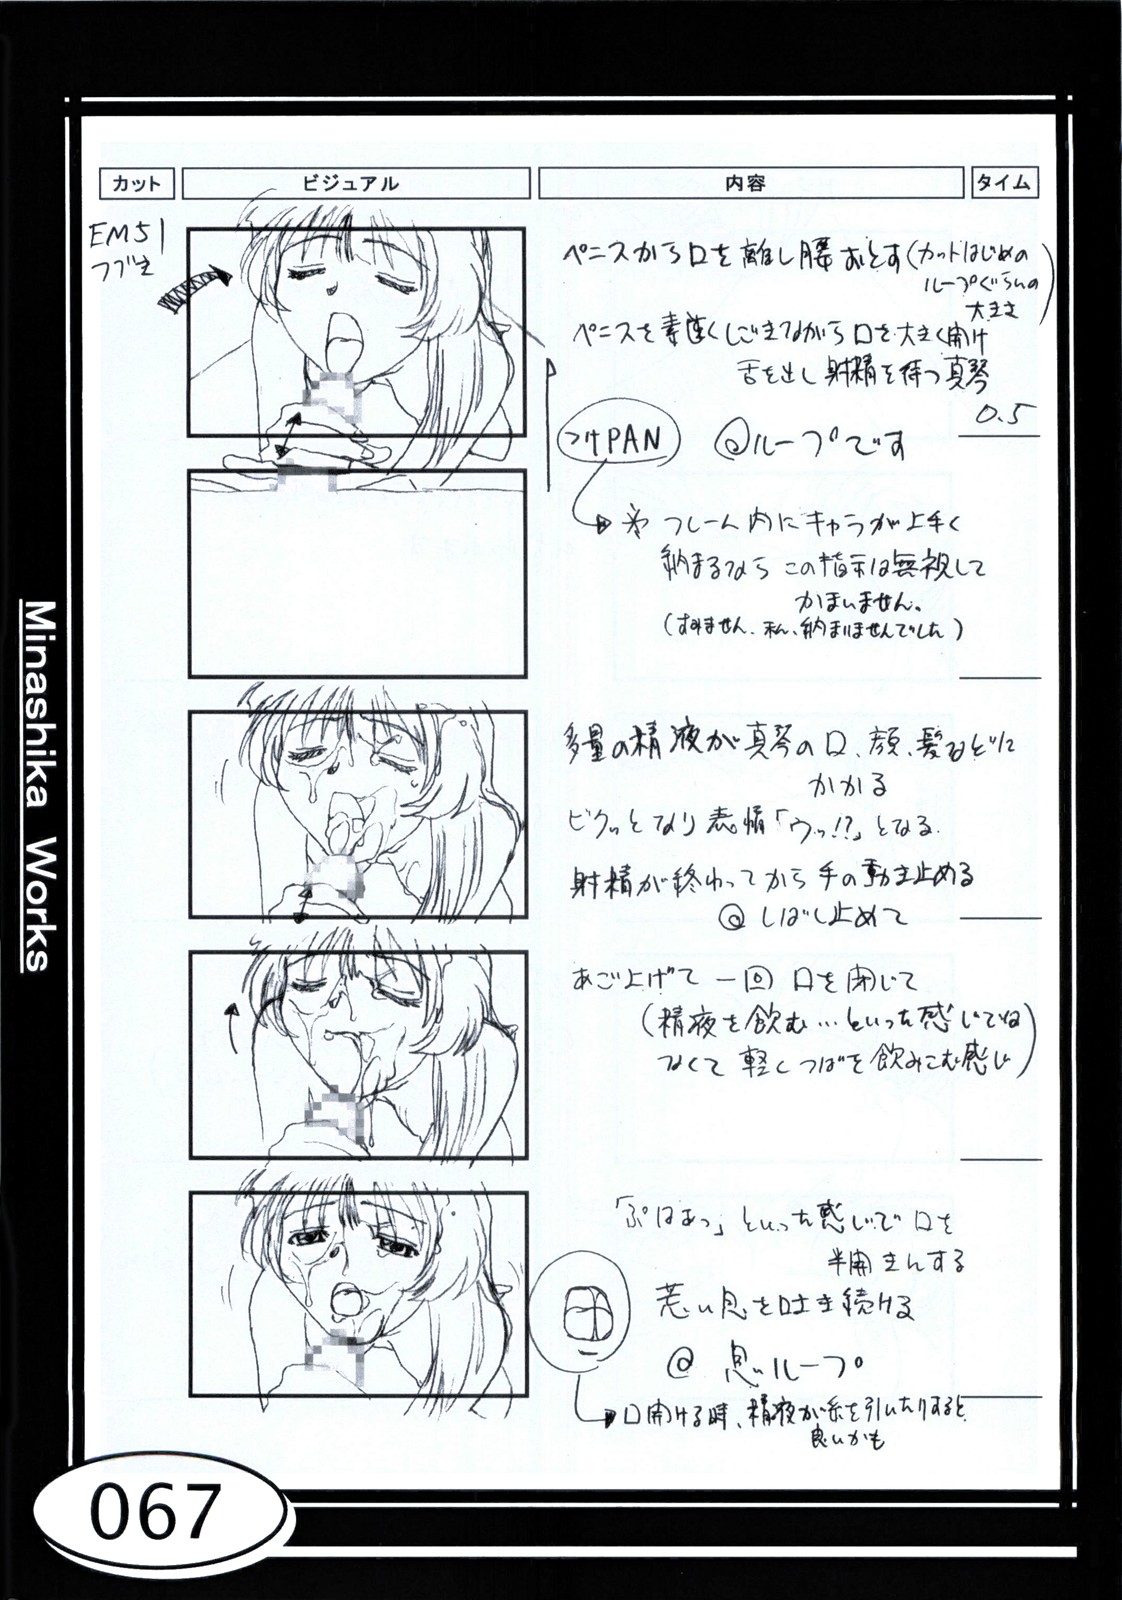 カット
ビジュアル
内容
タイム
EM51
つづき
ペニスから口を離し腰おとす(カットはじめの
ループぐらいの
大きさ)
ペニスを素速くしごきながら口を大きく開け
舌を出し射精を待つ真琴
0.5
つけPAN
@ループです
※フレーム内にキャラが上手く
納まるなら この指示は無視して
かまいません。
(すみません、私、納まりませんでした)
多量の精液が真琴の口、顔、髪などに
かかる
ビクッとなり表情「ウッ!?」となる。
射精が終わってから手の動き止める
@しばし止めて
あご上げて 一回 口を閉じて
(精液を飲む…といった感じでは
なくて 軽くつばを飲みこむ感じ)
「ぷはぁっ」といった感じで口を
半開きにする
荒い息を吐き続ける
@ 息ループ
口開ける時、精液が糸を引いたりすると
良いかも
Minashika Works
067